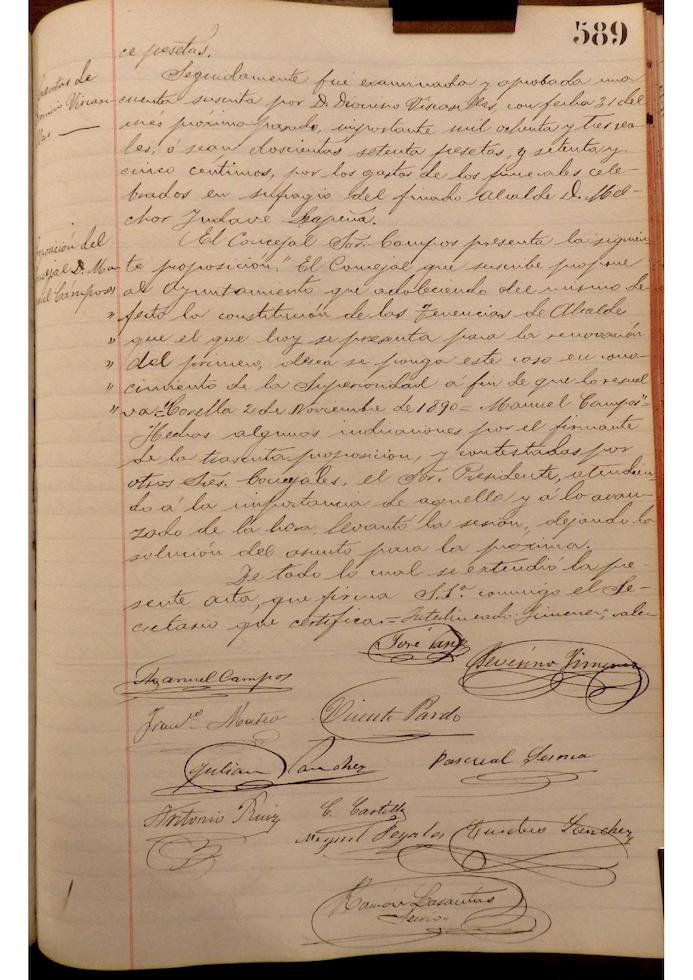 589
ce pesetas.
Cuentas de
Dionisio Viscasi-
llas
Seguidamente fué examinada y aprobada una
cuenta suscrita por D. Dionisio Viscasillas, con fecha 31 del
més próximo pasado, importante mil ochenta y tres rea-
les, ó sean doscientas setenta pesetas, y setenta y
cinco céntimos, por los gastos de los funerales cele-
brados en sufragio del finado Alcalde D. Mel-
chor
Proposición del
Concejal D. Ma-
nuel Campos
El Concejal Sor. Campos presenta la siguien-
te proposición." El Concejal que suscribe propone
al Ayuntamiento que adoleciendo del mismo de-
" fecto la constitución de las Tenencias de Alcalde
" que el que hoy se presenta para la renovación
" del primero, desea se ponga este caso en cono-
" cimiento de la Superioridad á fin de que lo resuel
" va=Corella 2 de Noviembre de 1890= Manuel Campos"=
Hechas algunas indicaciones por el firmante
de la trascrita proposición, y contestadas por
otros Sres. Concejales, el Sor. Presidente, atendien-
do á la importancia de aquella y á lo avan-
zado de la hora, levantó la sesión, dejando la
solución del asunto para la próxima.
De todo lo cual se extendió la pre-
sente acta, que firma S.Sa. conmigo el Se-
cretario que certifica.= Interlineado: Jimenez, vale=
José Sanz
Manuel Campos
Severino Jimenez
Franco. Mateo
Vicente Pardo
Julian Sanchez
Pascual Sesma
Antonio Ruiz
C. Castilla
Miguel
Eusebio Sanchez
Ramón Lasantas